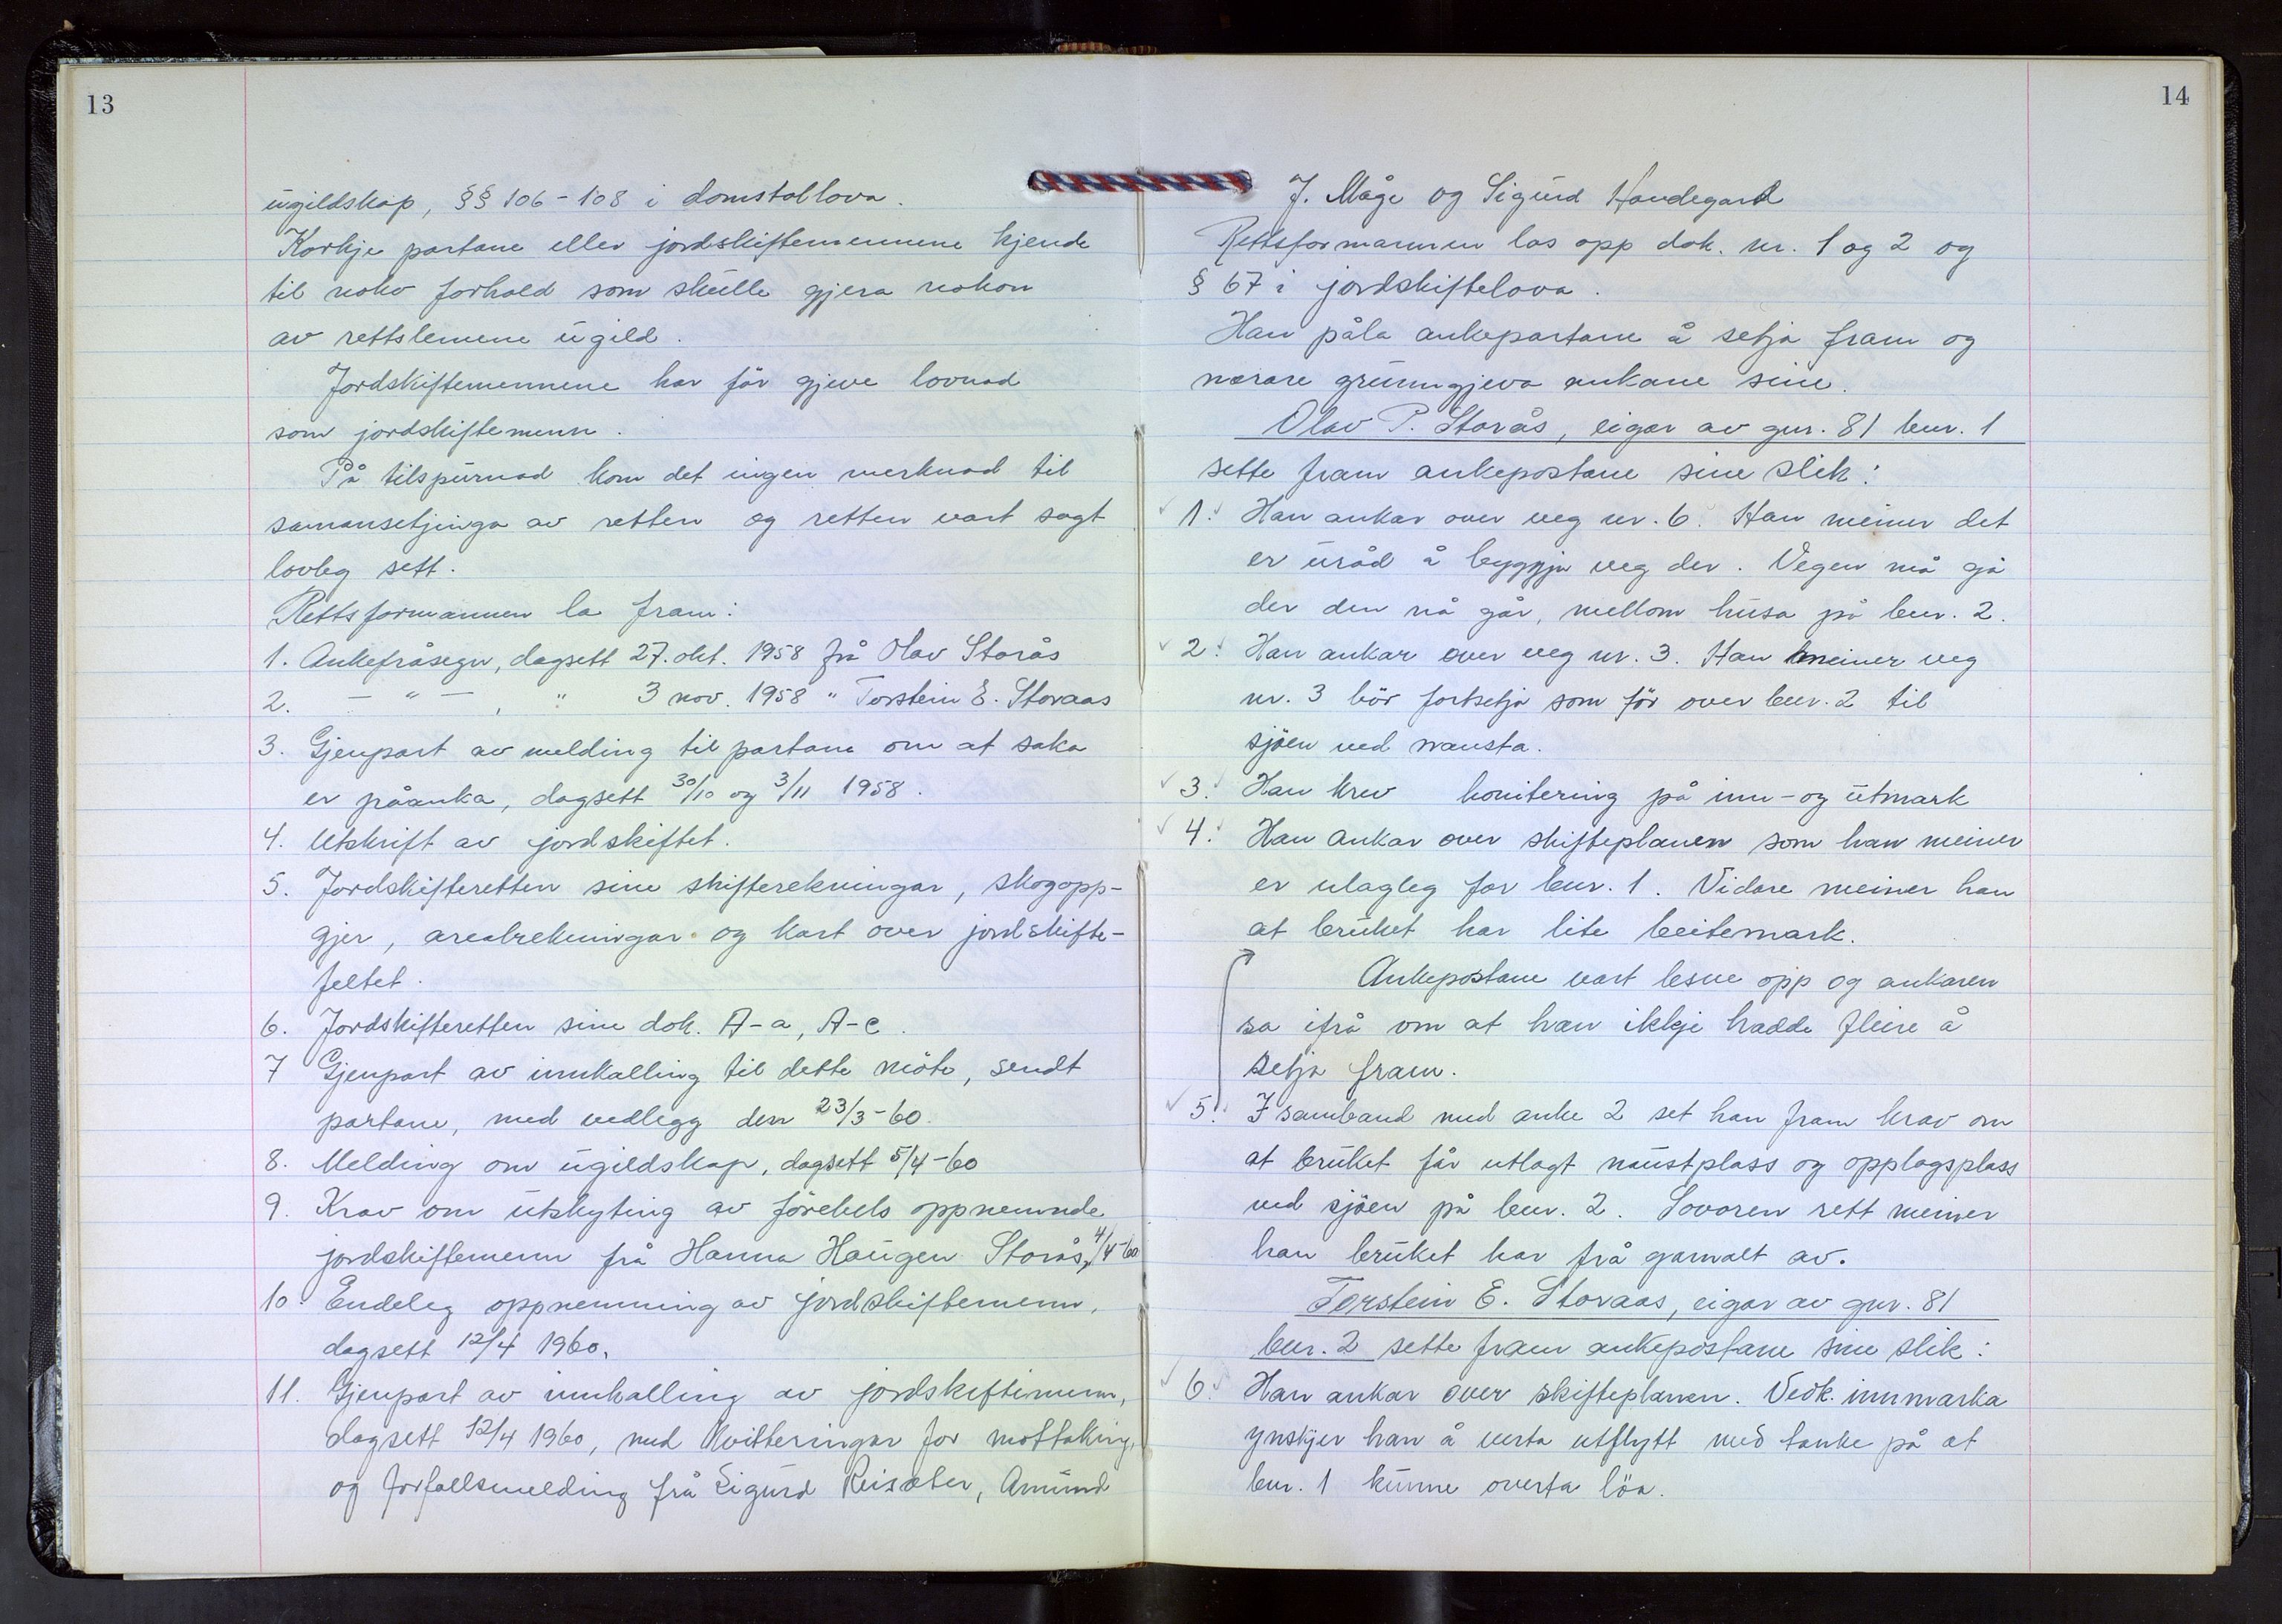 13
ugildskap, §§ 106-108 i domstollova.
Korkje partane eller jordskiftemennene kjende
til noko forhold som skulle gjera nokon
av rettslemene ugild.
Jordskiftemennene har før gjeve lovnad
som jordskiftemenn.
På tilspurnad kom det ingen merknad til
samansetjinga av retten og retten vart sagt
lovleg sett.
Rettsformannen la fram:
1. Ankefråsegn, dagsett 27. okt. 1958 frå Olav Storås
2. — " — , " 3 nov. 1958 " Torstein E. Storaas
3. Gjenpart av melding til partane om at saka
er påanka, dagsett 30/10 og 3/11 1958.
4. Utskrift av jordskiftet.
5. Jordskifteretten sine skifterekningar, skogopp-
gjer, arealrekningar og kart over jordskifte-
feltet.
6. Jordskifteretten sine dok. A-a, A-c.
7 Gjenpart av innkalling til dette møte, sendt
partane, med vedlegg den 23/3-60.
8. Melding om ugildskap, dagsett 5/4-60
9. Krav om utskyting av førebels oppnemnde
jordskiftemenn frå Hanna Haugen Storås, 4/4-60
10. Endeleg oppnemning av jordskiftemenn,
dagsett 12/4 1960.
11. Gjenpart av innkalling av jordskiftemenn,
dagsett 12/4 1960, med kvitteringar for mottaking,
og forfallsmelding frå Sigurd Reisæter, Amund
14
J. Måge og Sigurd Handegard
Rettsformannen las opp dok. nr. 1 og 2 og
§ 67 i jordskiftelova.
Han påla ankepartane å setja fram og
nærare grunngjeva ankane sine.
Olav P. Storås, eigar av gnr. 81 bnr. 1
sette fram ankepostane sine slik:
1. Han ankar over veg nr. 6. Han meiner det
er uråd å byggja veg der. Vegen må gå
der den nå går, mellom husa på bnr. 2.
2. Han ankar over veg nr. 3. Han meiner veg
nr. 3 bør fortsetja som før over bnr. 2 til
sjøen ved nausta.
3. Han krev bonitering på inn- og utmark
4. Han ankar over skifteplanen som han meiner
er ulagleg for bnr. 1. Vidare meiner han
at bruket har lite beitemark.
Ankepostane vart lesne opp og ankaren
sa ifrå om at han ikkje hadde fleire å
setja fram.
5. I samband med anke 2 set han fram krav om
at bruket får utlagt naustplass og opplagsplass
ved sjøen på bnr. 2. Sovoren rett meiner
han bruket har frå gamalt av.
Torstein E. Storaas, eigar av gnr. 81
bnr. 2 sette fram ankepostane sine slik:
6. Han ankar over skifteplanen. Vedk. innmarka
ynskjer han å verta utflytt med tanke på at
bnr. 1 kunne overta løa.